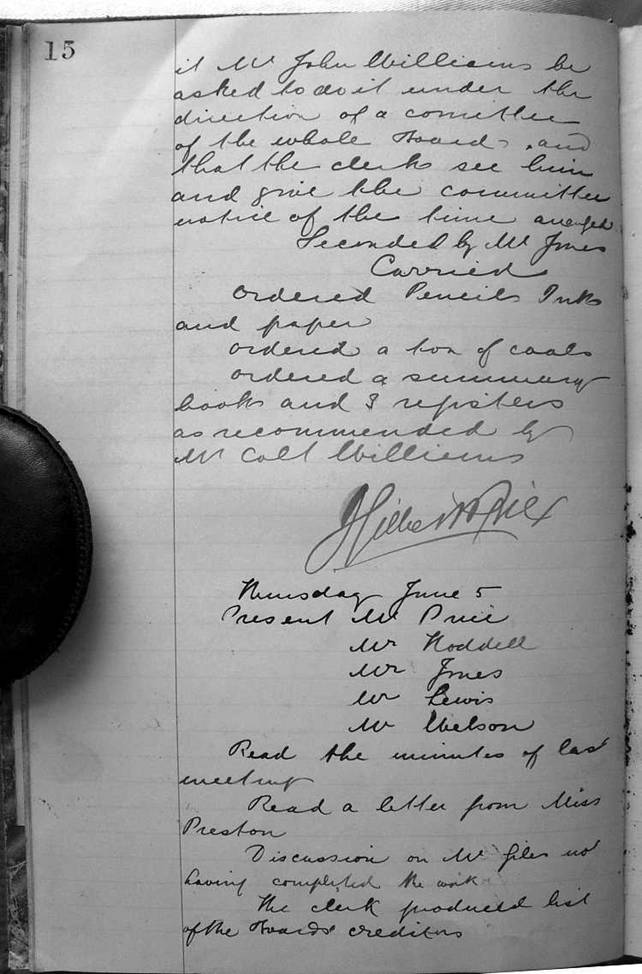 15
it Mr John Williams be
asked to do it under the
direction of a comittee
of the whole Board, and
that the clerk see him
and give the committee
notice of the time
Seconded by Mr Jones
Carried
Ordered Pencils Inks
and paper
Ordered a ton of coals
Ordered a summary
book and 3 registers
as recommended by
Mr Colt Williams
Thursday June 5
Present Mr Price
Mr Hoddell
Mr Jones
Mr Lewis
Mr Webson
Read the minutes of last
meeting
Read a letter from Miss
Preston
Discussion on Mr Giles not
having completed the work
The clerk produced list
of the Boards creditors